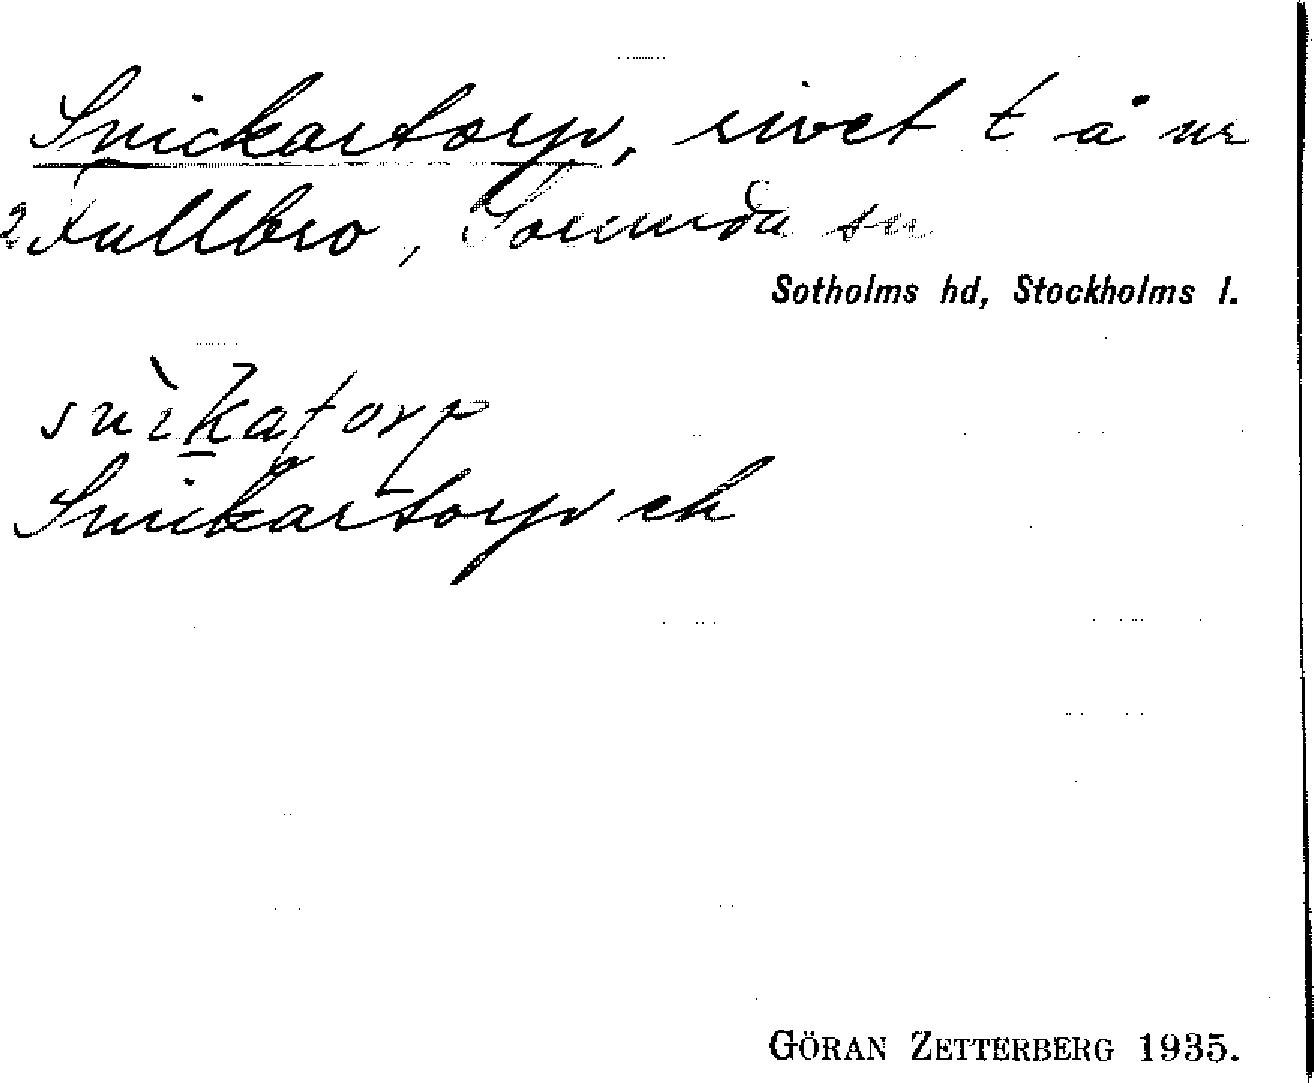 Snickartorp, rivet t å nr
2 Fullbro, Sorunda sn
Sotholms hd, Stockholms l.
snìkatorp
Snickartorp ek
GÖRAN ZETTERBERG 1935.